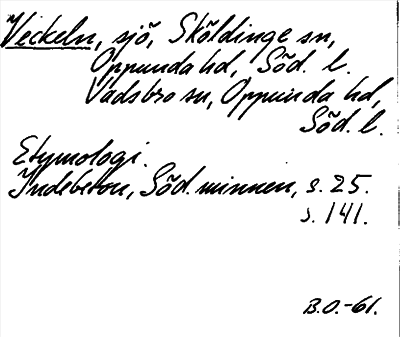 Veckeln, sjö, Sköldinge sn,
Oppunda hd, Söd. l.
Vadsbro sn, Oppunda hd,
Söd. l.
Etymologi.
Indebetou, Söd. minnen, s. 25.
s. 141.
B.O.-61.